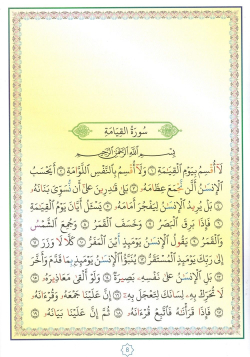 سُورَةُ القِيَامَةِ
بِسْمِ اللَّهِ الرَّحْمَٰنِ الرَّحِيمِ
لَآ أُقْسِمُ بِيَوْمِ ٱلْقِيَٰمَةِ ۝ وَلَآ أُقْسِمُ بِٱلنَّفْسِ ٱللَّوَّامَةِ ۝ أَيَحْسَبُ
ٱلْإِنسَٰنُ أَلَّن نَّجْمَعَ عِظَامَهُۥ ۝ بَلَىٰ قَٰدِرِينَ عَلَىٰٓ أَن نُّسَوِّىَ بَنَانَهُۥ ۝
بَلْ يُرِيدُ ٱلْإِنسَٰنُ لِيَفْجُرَ أَمَامَهُۥ ۝ يَسْـَٔلُ أَيَّانَ يَوْمُ ٱلْقِيَٰمَةِ
۝ فَإِذَا بَرِقَ ٱلْبَصَرُ ۝ وَخَسَفَ ٱلْقَمَرُ ۝ وَجُمِعَ ٱلشَّمْسُ
وَٱلْقَمَرُ ۝ يَقُولُ ٱلْإِنسَٰنُ يَوْمَئِذٍ أَيْنَ ٱلْمَفَرُّ ۝ كَلَّا لَا وَزَرَ ۝
إِلَىٰ رَبِّكَ يَوْمَئِذٍ ٱلْمُسْتَقَرُّ ۝ يُنَبَّؤُا۟ ٱلْإِنسَٰنُ يَوْمَئِذٍۭ بِمَا قَدَّمَ وَأَخَّرَ
۝ بَلِ ٱلْإِنسَٰنُ عَلَىٰ نَفْسِهِۦ بَصِيرَةٌ ۝ وَلَوْ أَلْقَىٰ مَعَاذِيرَهُۥ ۝
لَا تُحَرِّكْ بِهِۦ لِسَانَكَ لِتَعْجَلَ بِهِۦٓ ۝ إِنَّ عَلَيْنَا جَمْعَهُۥ وَقُرْءَانَهُۥ
۝ فَإِذَا قَرَأْنَٰهُ فَٱتَّبِعْ قُرْءَانَهُۥ ۝ ثُمَّ إِنَّ عَلَيْنَا بَيَانَهُۥ ۝